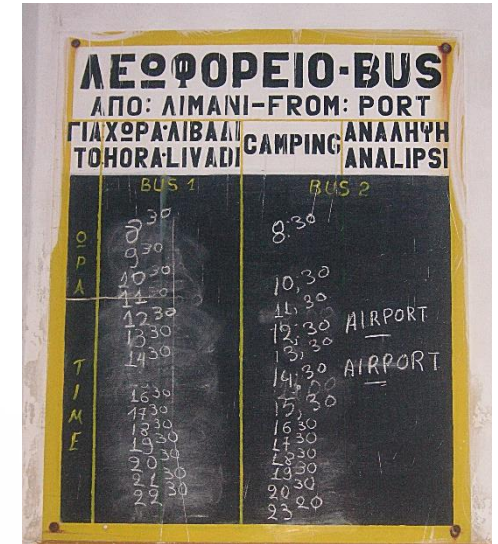 ΛΕΩΦΟΡΕΙΟ·BUS
ΑΠΟ: ΛΙΜΑΝΙ-FROM: PORT
ΓΙΑΧΩΡΑ·ΛΙΒΑΔΙ
TOHORA·LIVADI
CAMPING
ΑΝΑΛΗΨΗ
ANALIPSI
ΩΡΑ
TIME
BUS 1
8 30
9 30
10 30
11 30
12 30
13 30
14 30
16 30
17 30
18 30
19 30
20 30
21 30
22 30
BUS 2
8:30
10,30
11,30
12,30 AIRPORT
13,30
14,30 AIRPORT
15,30
16 30
17 30
20 30
23 20